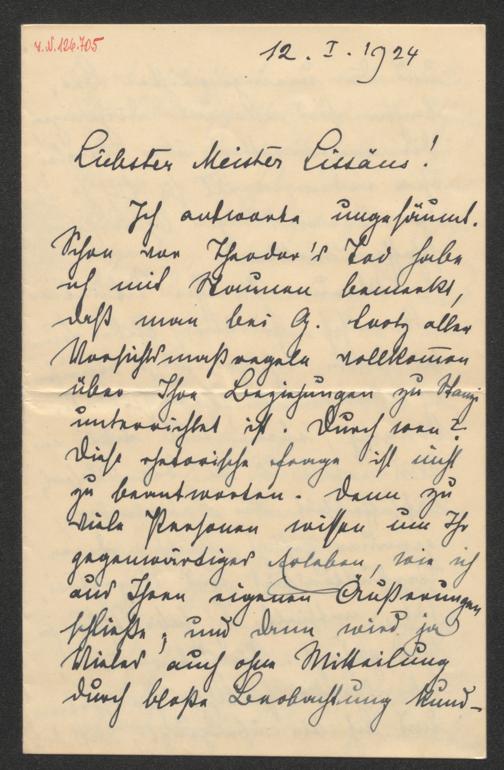 V.N.126.705
12. I. 1924
Liebster Meister Lissäus!
Ich antworte ungesäumt.
Schon vor Theodor's Tod habe
ich mit Staunen bemerkt,
daß man bei G. trotz aller
Vorsichtsmaßregeln vollkom̅en
über Ihre Beziehungen zu Stanzi
unterrichtet ist. Durch wen?
Diese rhetorische Frage ist nicht
zu beantworten. Denn zu
viele Personen wissen um Ihr
gegenwärtiges Erleben, wie ich
aus Ihren eigenen Äußerungen
schließe; und dann wird ja
Vieles auch ohne Mitteilung
durch bloße Beobachtung kund-